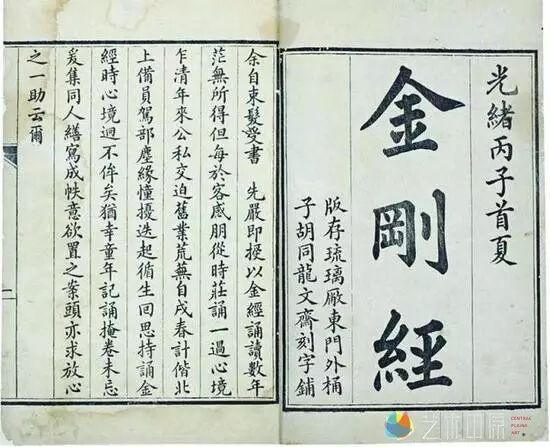 光緒丙子首夏
金剛經
版存琉璃廠東門外桶
子胡同龍文齋刻字鋪
余自束髮受書 先嚴即授以金經誦讀數年
茫無所得但每於客感朋從時莊誦一過心境
乍清年來公私交迫舊業荒蕪自戌春計偕北
上備員駕部塵緣憧擾迭起循生回思持誦金
經時心境迥不侔矣猶幸童年記誦掩卷未忘
爰集同人繕寫成帙意欲置之案頭亦求放心
之一助云爾
艺术中原
CENTRAL
PLAINS
ART